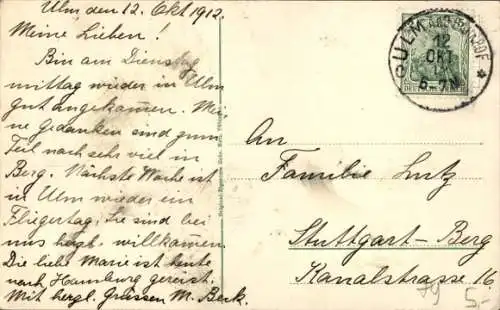 Ulm den 12. Okt 1912.
Meine Lieben!
Bin am Dienstag
mittag wieder in Ulm
gut angekommen. Mei-
ne Gedanken sind zum
Teil noch sehr viel in
Berg. Nächste Woche ist
in Ulm wieder ein
Fliegertag, Sie sind bei
uns hrzl. willkommen
Die liebe Marie ist heute
nach Hamburg gereist.
Mit hergl. Grüssen M. Beck.
ULM
12
OKT
12
6-7N
An
Familie Lutz
Stuttgart-Berg
Kanalstrasse 16
79
5,-